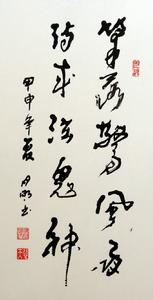 筆落驚風雨
詩成泣鬼神
甲申年夏
书